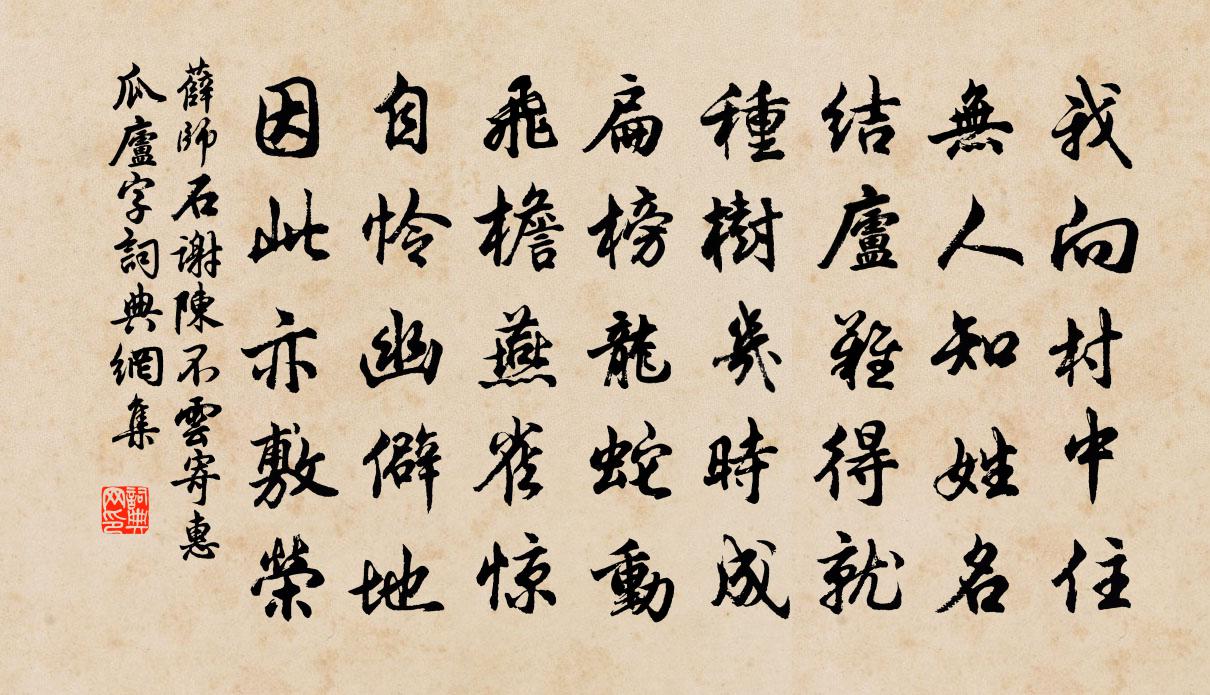 我向村中住
無人知姓名
結廬難得就
種樹幾時成
扁榜龍蛇動
飛檐燕雀惊
自怜幽僻地
因此亦敷榮
薛師石謝陳不雲寄惠
瓜廬字詞典網集
詞典网印